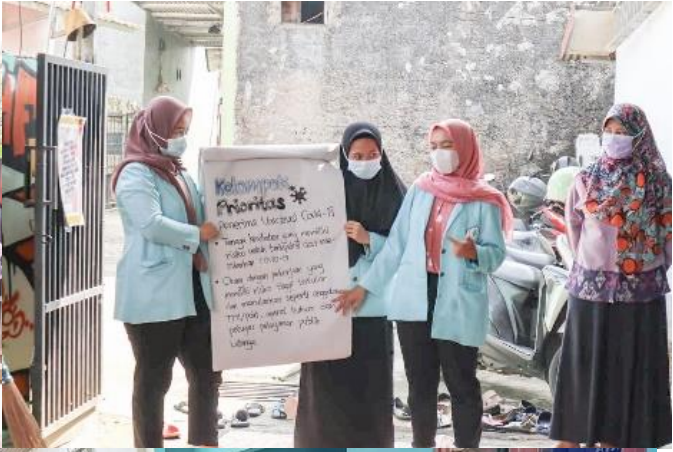 Kelompok
Prioritas
Penerima Vaksinasi Covid-19
Tenaga kesehatan yang memiliki
risiko untuk terinfeksi dan
COVID-19
Orang dengan pekerjaan yang
memiliki risiko tinggi tertular
dan menularkan seperti anggota
TNI/Polri, aparat hukum dan
petugas pelayanan publik
Lainnya.